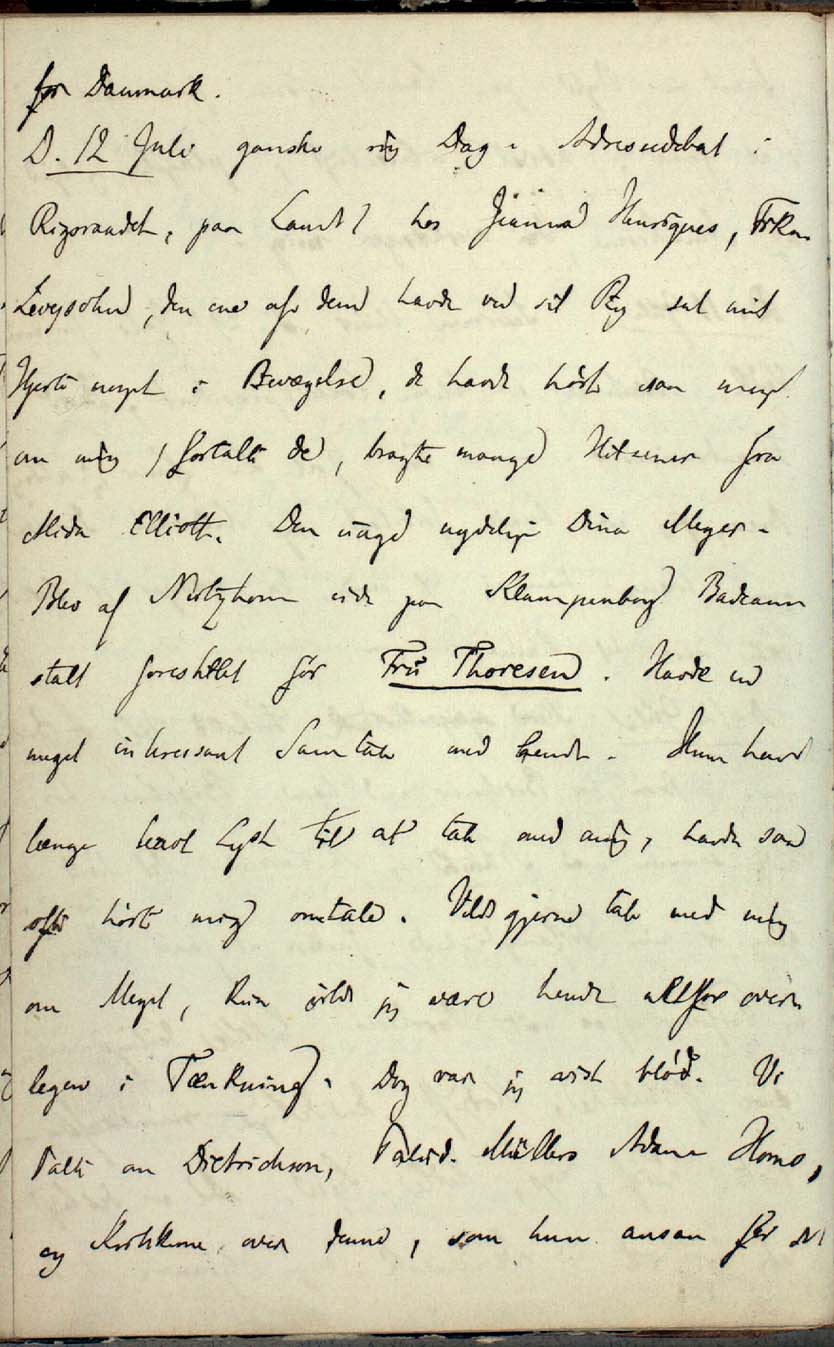 for Danmark.
D. 12 Juli ganske rig Dag. Adressedebat i
Rigsraadet, paa Landet hos Henriques, Frkn
Levysohn, den ene af dem havde ved sit Ry sat mit
Hjerte noget i Bevægelse, de havde hørt saa meget
om mig, fortalte de, bragte mange Hilsener fra
Elliott. Den unge nydelige Dina Meyer.
Blev af ude paa Klampenborg Badean
stalt forestillet for Fru Thoresen. Havde en
meget interessant Samtale med hende. Hun havde
længe havt Lyst til at tale med mig, havde saa
ofte hørt mig omtale. Vilde gjerne tale med mig
om Meget, kun vilde jeg være hende altfor over
legen i Tænkning. Dog var jeg vist blød. Vi
talte om Dietrichson, Palud. Müllers Adam Homo,
og Kritikkerne over denne, som hun ansaa for det